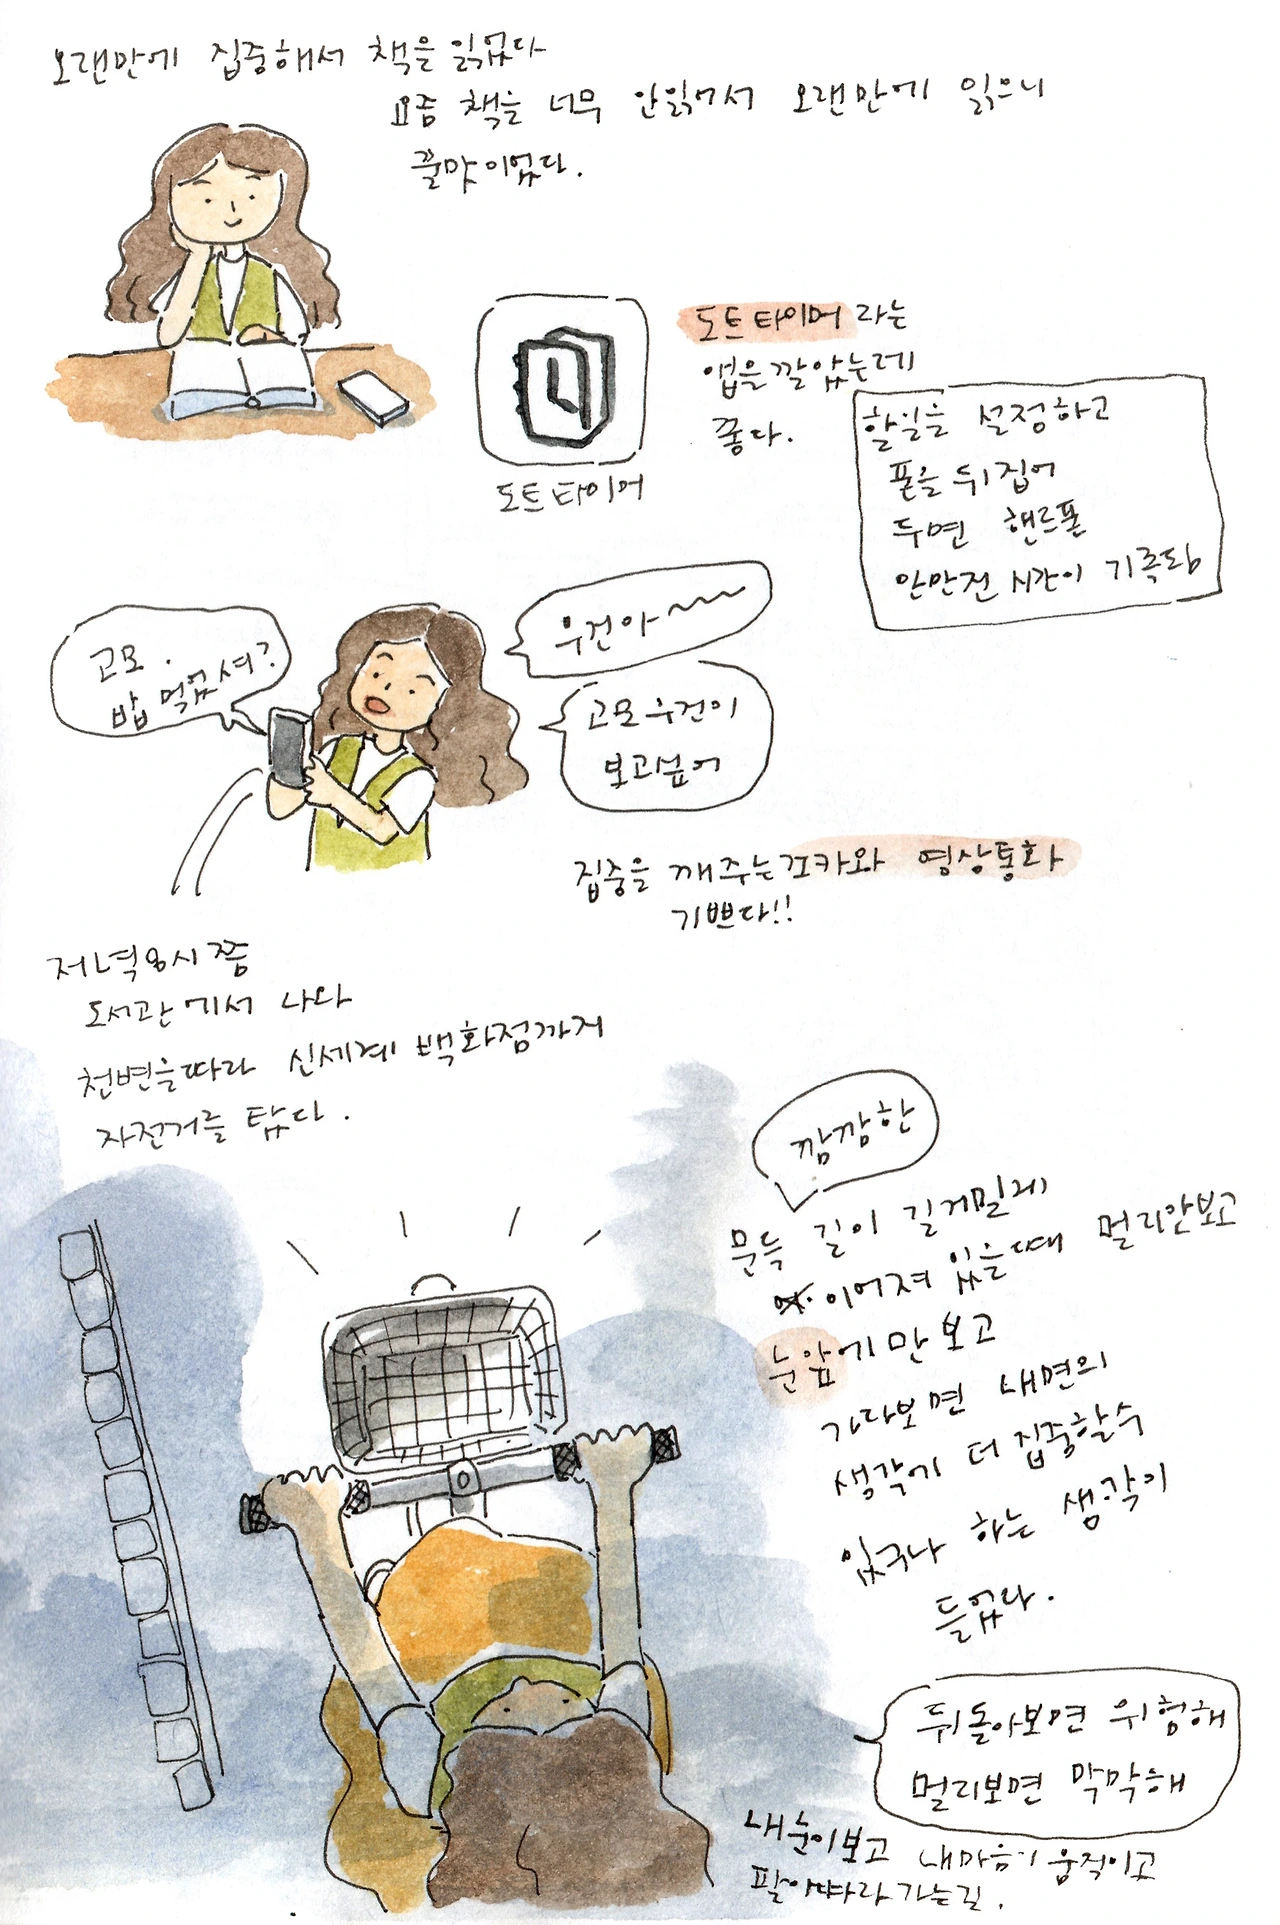 오랜만에 집중해서 책을 읽었다
요즘 책을 너무 안읽어서 오랜만에 읽으니
꿀맛이었다.
도트타이머 라는
앱을깔았는데
좋다.
도트타이머
할일을 설정하고
폰을 뒤집어
두면 핸드폰
안만진 시간이 기록됨
고모.
밥 먹었셔?
우건아~~~
고모 우건이
보고싶어
집중을 깨주는 조카와 영상통화
기쁘다!!
저녁8시쯤
도서관에서 나와
천변을따라 신세계 백화점까지
자전거를 탔다.
깜깜한
문득 길이 길게밀게
이어져 있을때 멀리안보고
눈앞에만 보고
가다보면 내면의
생각에 더 집중할수
있구나 하는 생각이
들었다.
뒤돌아보면 위험해
멀리보면 막막해
내눈이보고 내마음이 움직이고
팔이따라가는길.